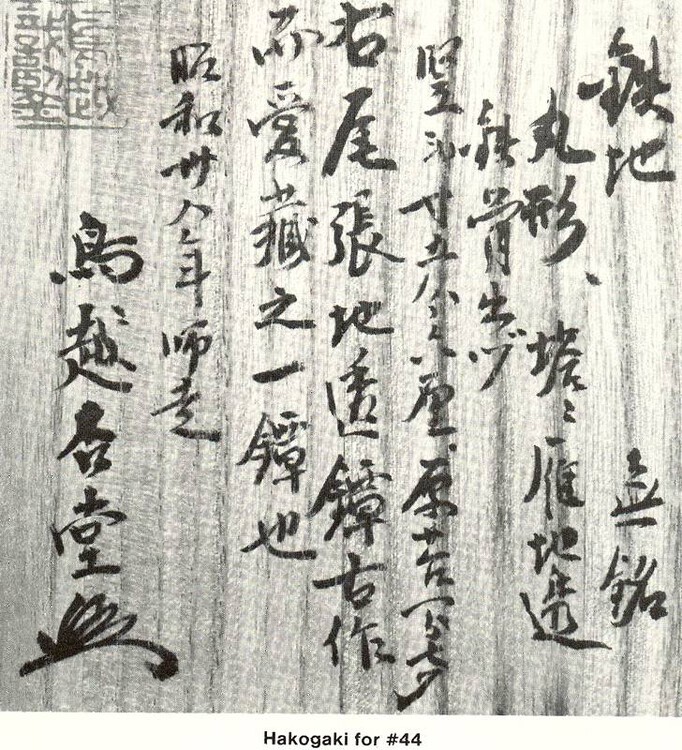 鉄地 無銘
丸形、塔ニ雁地透
鉄骨出ヅ
竪 寸五分 厘 一分
右尾張地透鐔古作
而愛藏之一鐔也
昭和卅八年師走
鳥越 堂
Hakogaki for #44